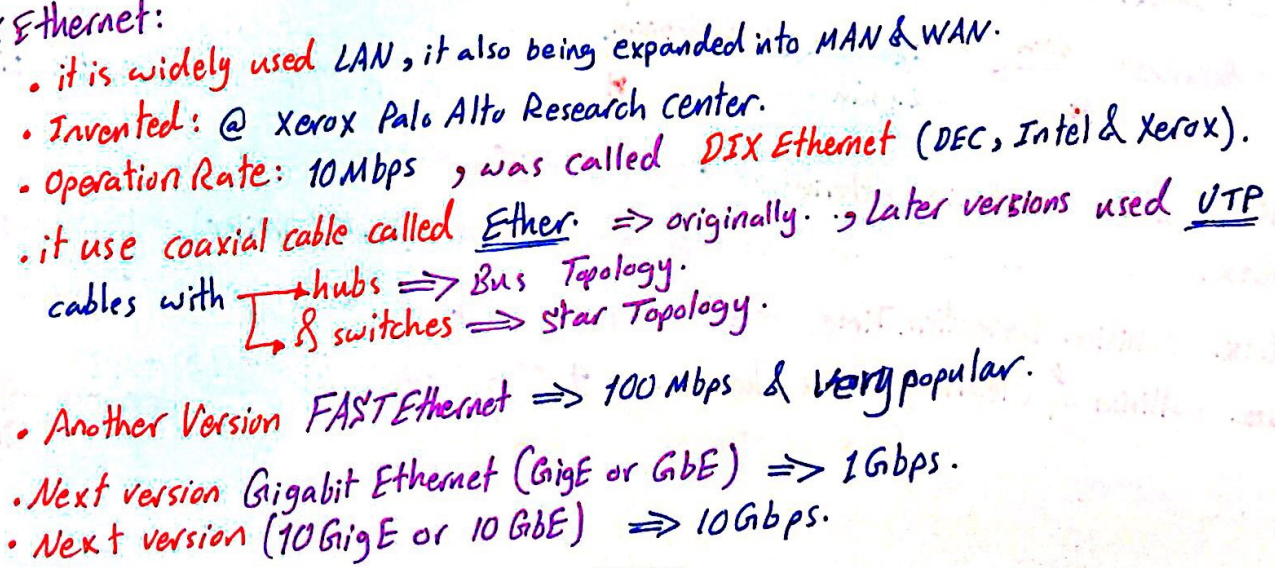 Ethernet:
• it is widely used LAN, it also being expanded into MAN & WAN.
• Invented: @ Xerox Palo Alto Research center.
• Operation Rate: 10Mbps, was called DIX Ethernet (DEC, Intel & Xerox).
• it use coaxial cable called Ether. => originally., Later versions used UTP
cables with → hubs => Bus Topology.
→ & switches => Star Topology.
• Another Version FAST Ethernet => 100 Mbps & Very popular.
• Next version Gigabit Ethernet (GigE or GbE) => 1Gbps.
• Next version (10GigE or 10 GbE) => 10Gbps.